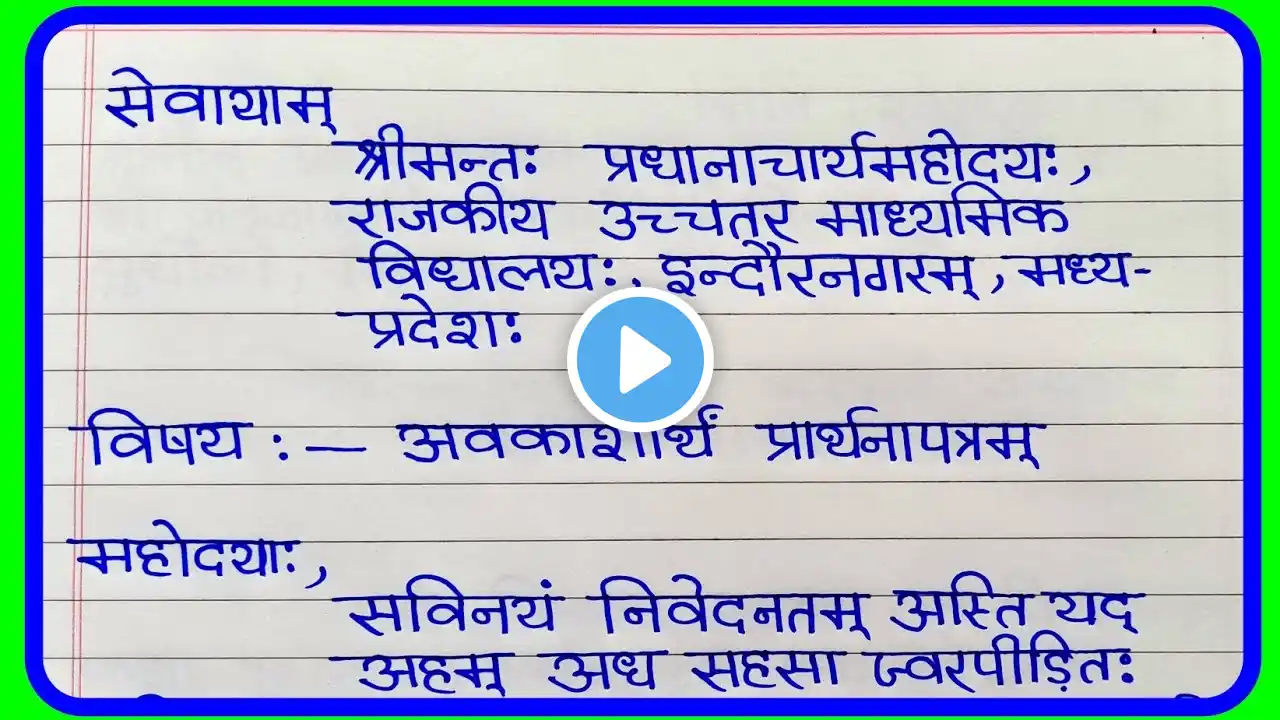 सेवायाम्
श्रीमन्तः प्रधानाचार्यमहोदयः,
राजकीय उच्चतर माध्यमिक
विधालयः, इन्दौरनगरम्, मध्य-
प्रदेशः
विषय :— अवकाशार्थं प्रार्थनापत्रम्
महोदयाः,
सविनयं निवेदनतम् अस्ति यद्
अहम् अध सहसा ज्वरपीड़ितः